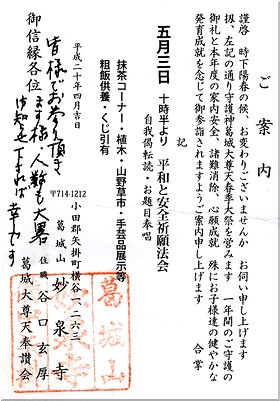 ご案内
謹啓 時下陽春の候、お変わりございませんか お伺い申し上げます
扨、左記の通り守護神葛城大尊天春季大祭を営みます 一年間のご守護の
御礼と本年度の家内安全、諸難消除、心願成就 殊にお子様達の健やかな
発育成就を念じて御参詣されますようご案内申し上げます 合掌
記
五月三日 十時半より 平和と安全祈願法会
自我偈転読・お題目奉唱
抹茶コーナー・植木・山野草市・手芸品展示等
粗飯供養・くじ引有
平成二十年四月吉日
〒714-1212
小田郡矢掛町横谷一、二六三
葛城山 妙泉寺
住職 谷口玄厚
葛城大尊天奉賛会
御信縁各位
皆様でお参え頂き
ます様 人数も大畧
御知らせ下されば
幸です
葛城山